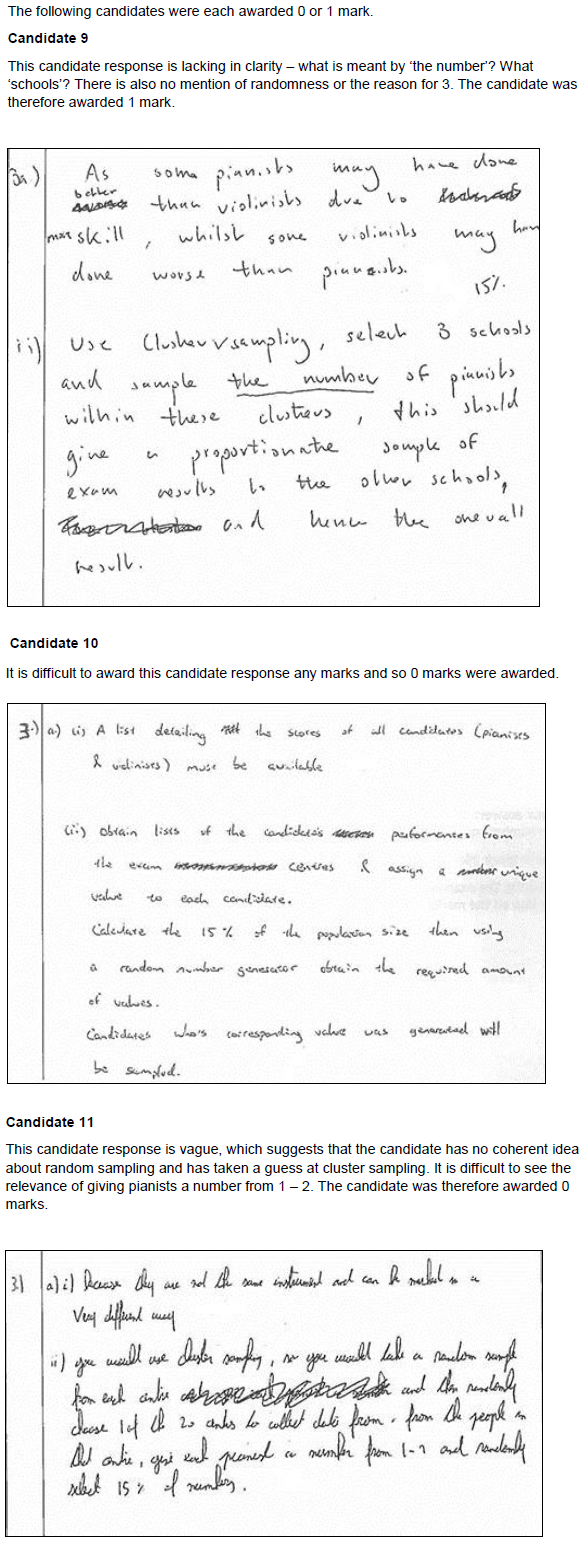 The following candidates were each awarded 0 or 1 mark.
Candidate 9
This candidate response is lacking in clarity – what is meant by ‘the number’? What
‘schools’? There is also no mention of randomness or the reason for 3. The candidate was
therefore awarded 1 mark.
3a) As some pianists may have done
better than violinists due to
more skill, whilst some violinists may have
done worse than pianists.
15%.
ii) Use Cluster sampling, select 3 schools
and sample the number of pianists
within these clusters, this should
give a proportionate sample of
exam results to the other schools,
and hence the overall
result.
Candidate 10
It is difficult to award this candidate response any marks and so 0 marks were awarded.
3.) a) (i) A list detailing the scores of all candidates (pianises
& violinises) must be available
(ii) obtain lists of the candidates performances from
the exam centres & assign a unique
value to each candidate.
Calculate the 15% of the population size then using
a random number generator obtain the required amount
of values.
Candidates who's corresponding value was generated will
be sampled.
Candidate 11
This candidate response is vague, which suggests that the candidate has no coherent idea
about random sampling and has taken a guess at cluster sampling. It is difficult to see the
relevance of giving pianists a number from 1 – 2. The candidate was therefore awarded 0
marks.
3) a) i) Because they are not the same instrument and can be marked in a
Very different way
ii) you would use cluster sampling, so you would take a random sample
from each centre and then randomly
choose 1 of the 20 centres to collect data from. from the people in
that centre, give each pianist a number from 1-? and randomly
select 15% of numbers.